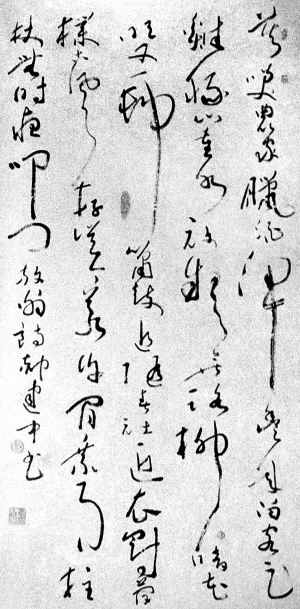 莫笑農家臘酒渾豐年留客足
雞豚山重水複疑無路柳暗花
明又一村簫鼓追隨春社近衣冠簡
樸古風存從今若許閒乘月拄
杖無時夜叩門 放翁詩 建中书